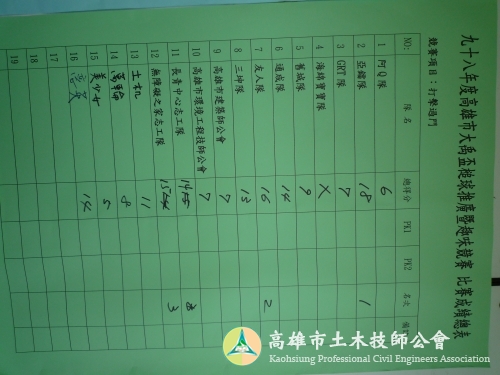 九十八年度高雄市大禹盃槌球推廣暨趣味競賽 比賽成績總表
競賽項目：打擊過門
NO: 隊名 總得分 PK1 PK2 名次
1 阿Q隊 6
2 亞鐳隊 18 1
3 GKT隊 7
4 海綿寶寶隊 X
5 舊城隊 9
6 通成隊 14
7 友人隊 16 2
8 三坤隊 13
9 高雄市建築師公會 7
10 高雄市環境工程技師公會 7
11 長青中心志工隊 3
12 無障礙之家志工隊
13 土木 11
14 8
15 美少女 5
16 14
17
18
19
高雄市土木技師公會
Kaohsiung Professional Civil Engineers Association